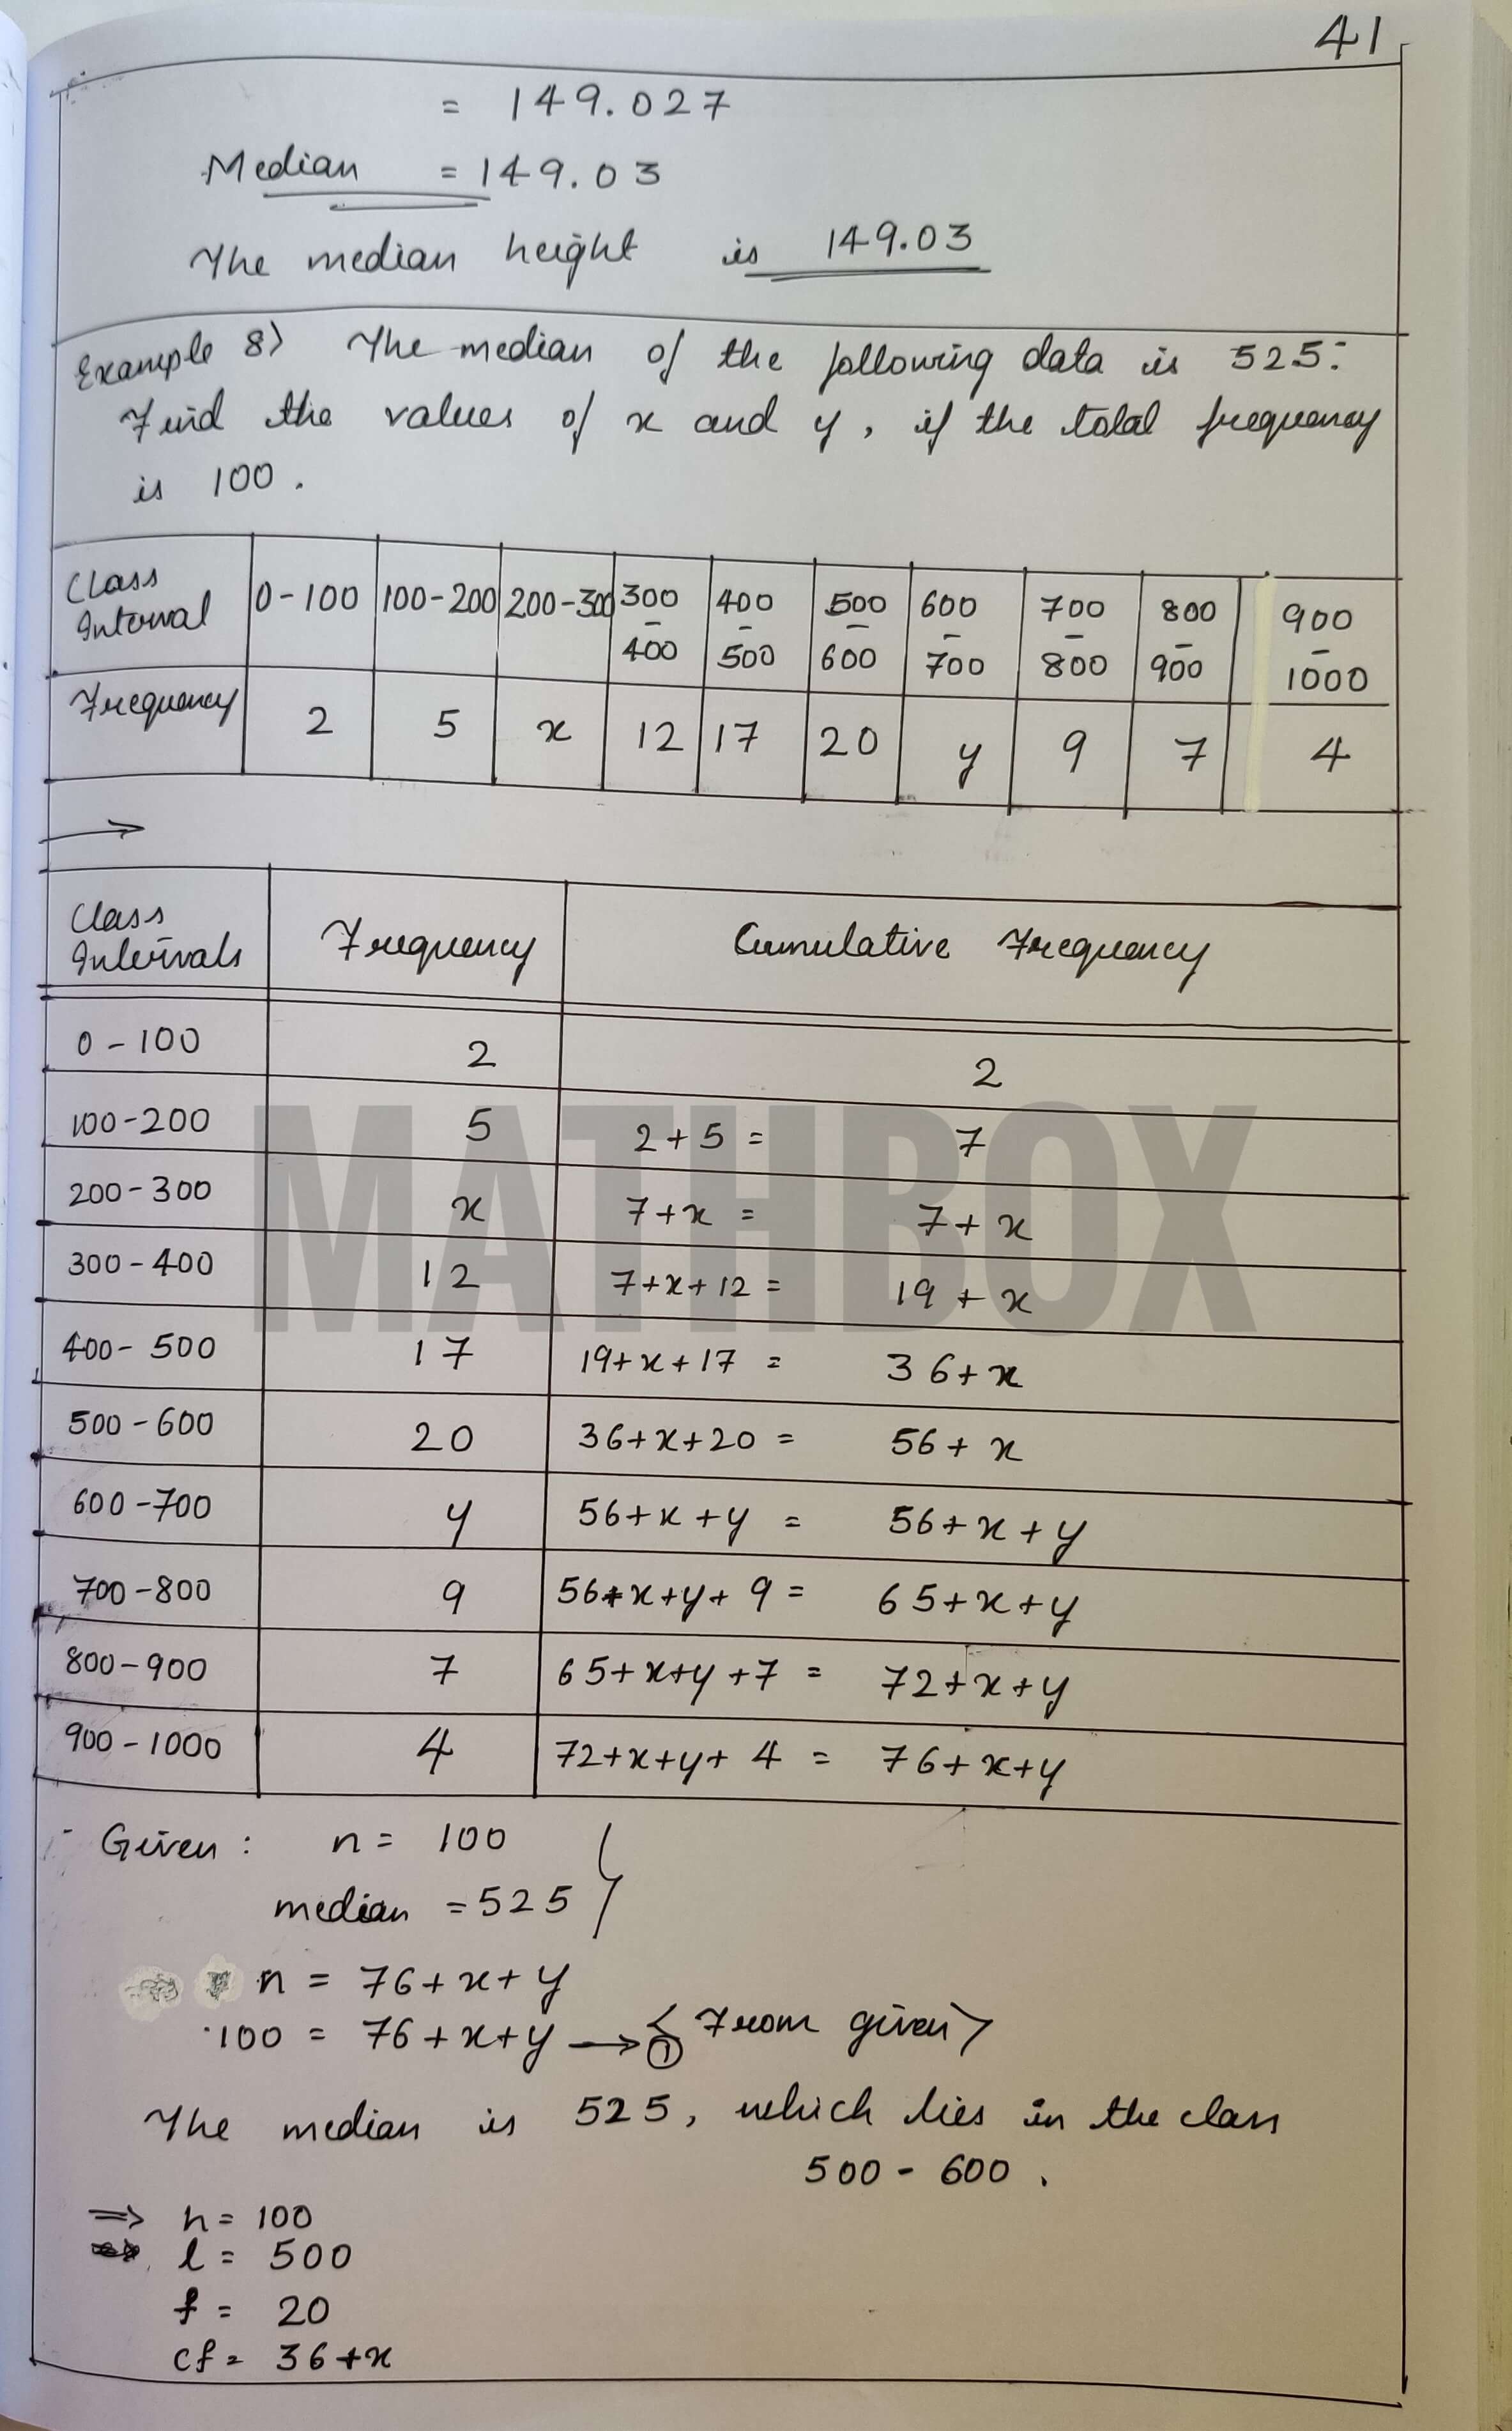 41
= 149.027
Median = 149.03
The median height is 149.03
Example 8) The median of the following data is 525.
Find the values of x and y, if the total frequency
is 100.
Class Interval 0-100 100-200 200-300 300-400 400-500 500-600 600-700 700-800 800-900 900-1000
Frequency 2 5 x 12 17 20 y 9 7 4
→
Class Intervals Frequency Cumulative Frequency
0-100 2 2
100-200 5 2+5 = 7
200-300 x 7+x = 7+x
300-400 12 7+x+12 = 19+x
400-500 17 19+x+17 = 36+x
500-600 20 36+x+20 = 56+x
600-700 y 56+x+y = 56+x+y
700-800 9 56+x+y+9 = 65+x+y
800-900 7 65+x+y+7 = 72+x+y
900-1000 4 72+x+y+4 = 76+x+y
MATHBOX
Given: n = 100
median = 525
n = 76+x+y
100 = 76+x+y → ① {From given}
The median is 525, which lies in the class
500-600.
⇒ h = 100
l = 500
f = 20
cf = 36+x